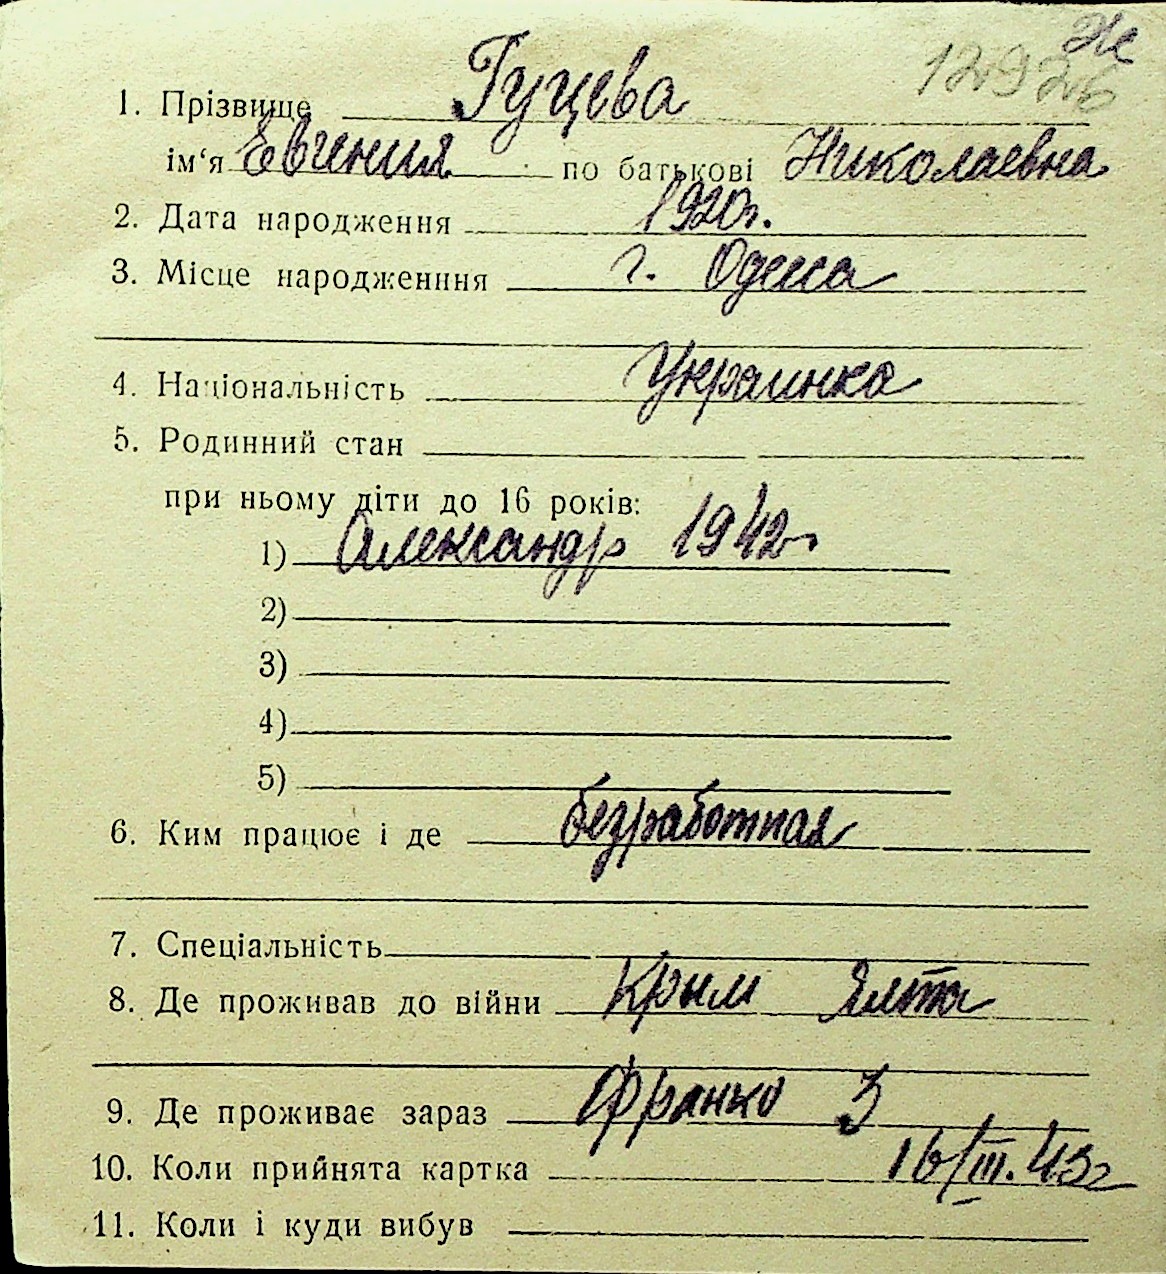 Же
12926
1. Прізвище Гуцева
ім‘я Евгения по батькові Николаевна
2. Дата народження 1920г.
3. Місце народженння г. Одесса
4. Національність Украинка
5. Родинний стан
при ньому діти до 16 років:
1) Александр 1942г
2)
3)
4)
5)
6. Ким працює і де безработная
7. Спеціальність
8. Де проживав до війни Крым Ялта
9. Де проживає зараз Франко 3
10. Коли прийнята картка 16/III.43г
11. Коли і куди вибув